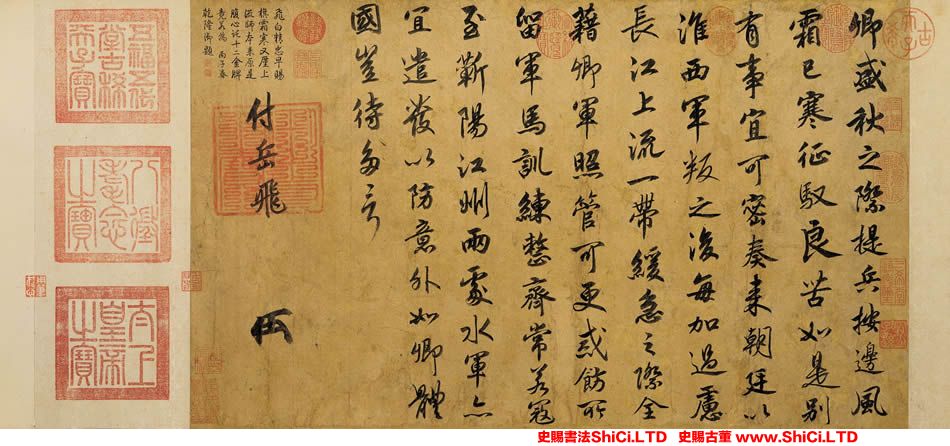 卿盛秋之際提兵按邊風
霜已寒征馭良苦如是別
有事宜可密奏來朝廷以
淮西軍叛之後每加過慮
長江上流一帶緩急之際全
藉卿軍照管可更戒飭所
留軍馬訓練整齊常若寇
至蘄陽江州兩處水軍亦
宜遣發以防意外如卿體
國豈待多言
付岳飛
飛白精忠早賜
旗霜寒又屋上
游師本來原是
腹心託十二金牌
竟莫為 丙子春
乾隆御題
五福五代
堂古稀
天子寶
八徵
耄念
之寶
太上
皇帝
之寶
史賜書法ShiCi.LTD 史賜古董www.ShiCi.LTD